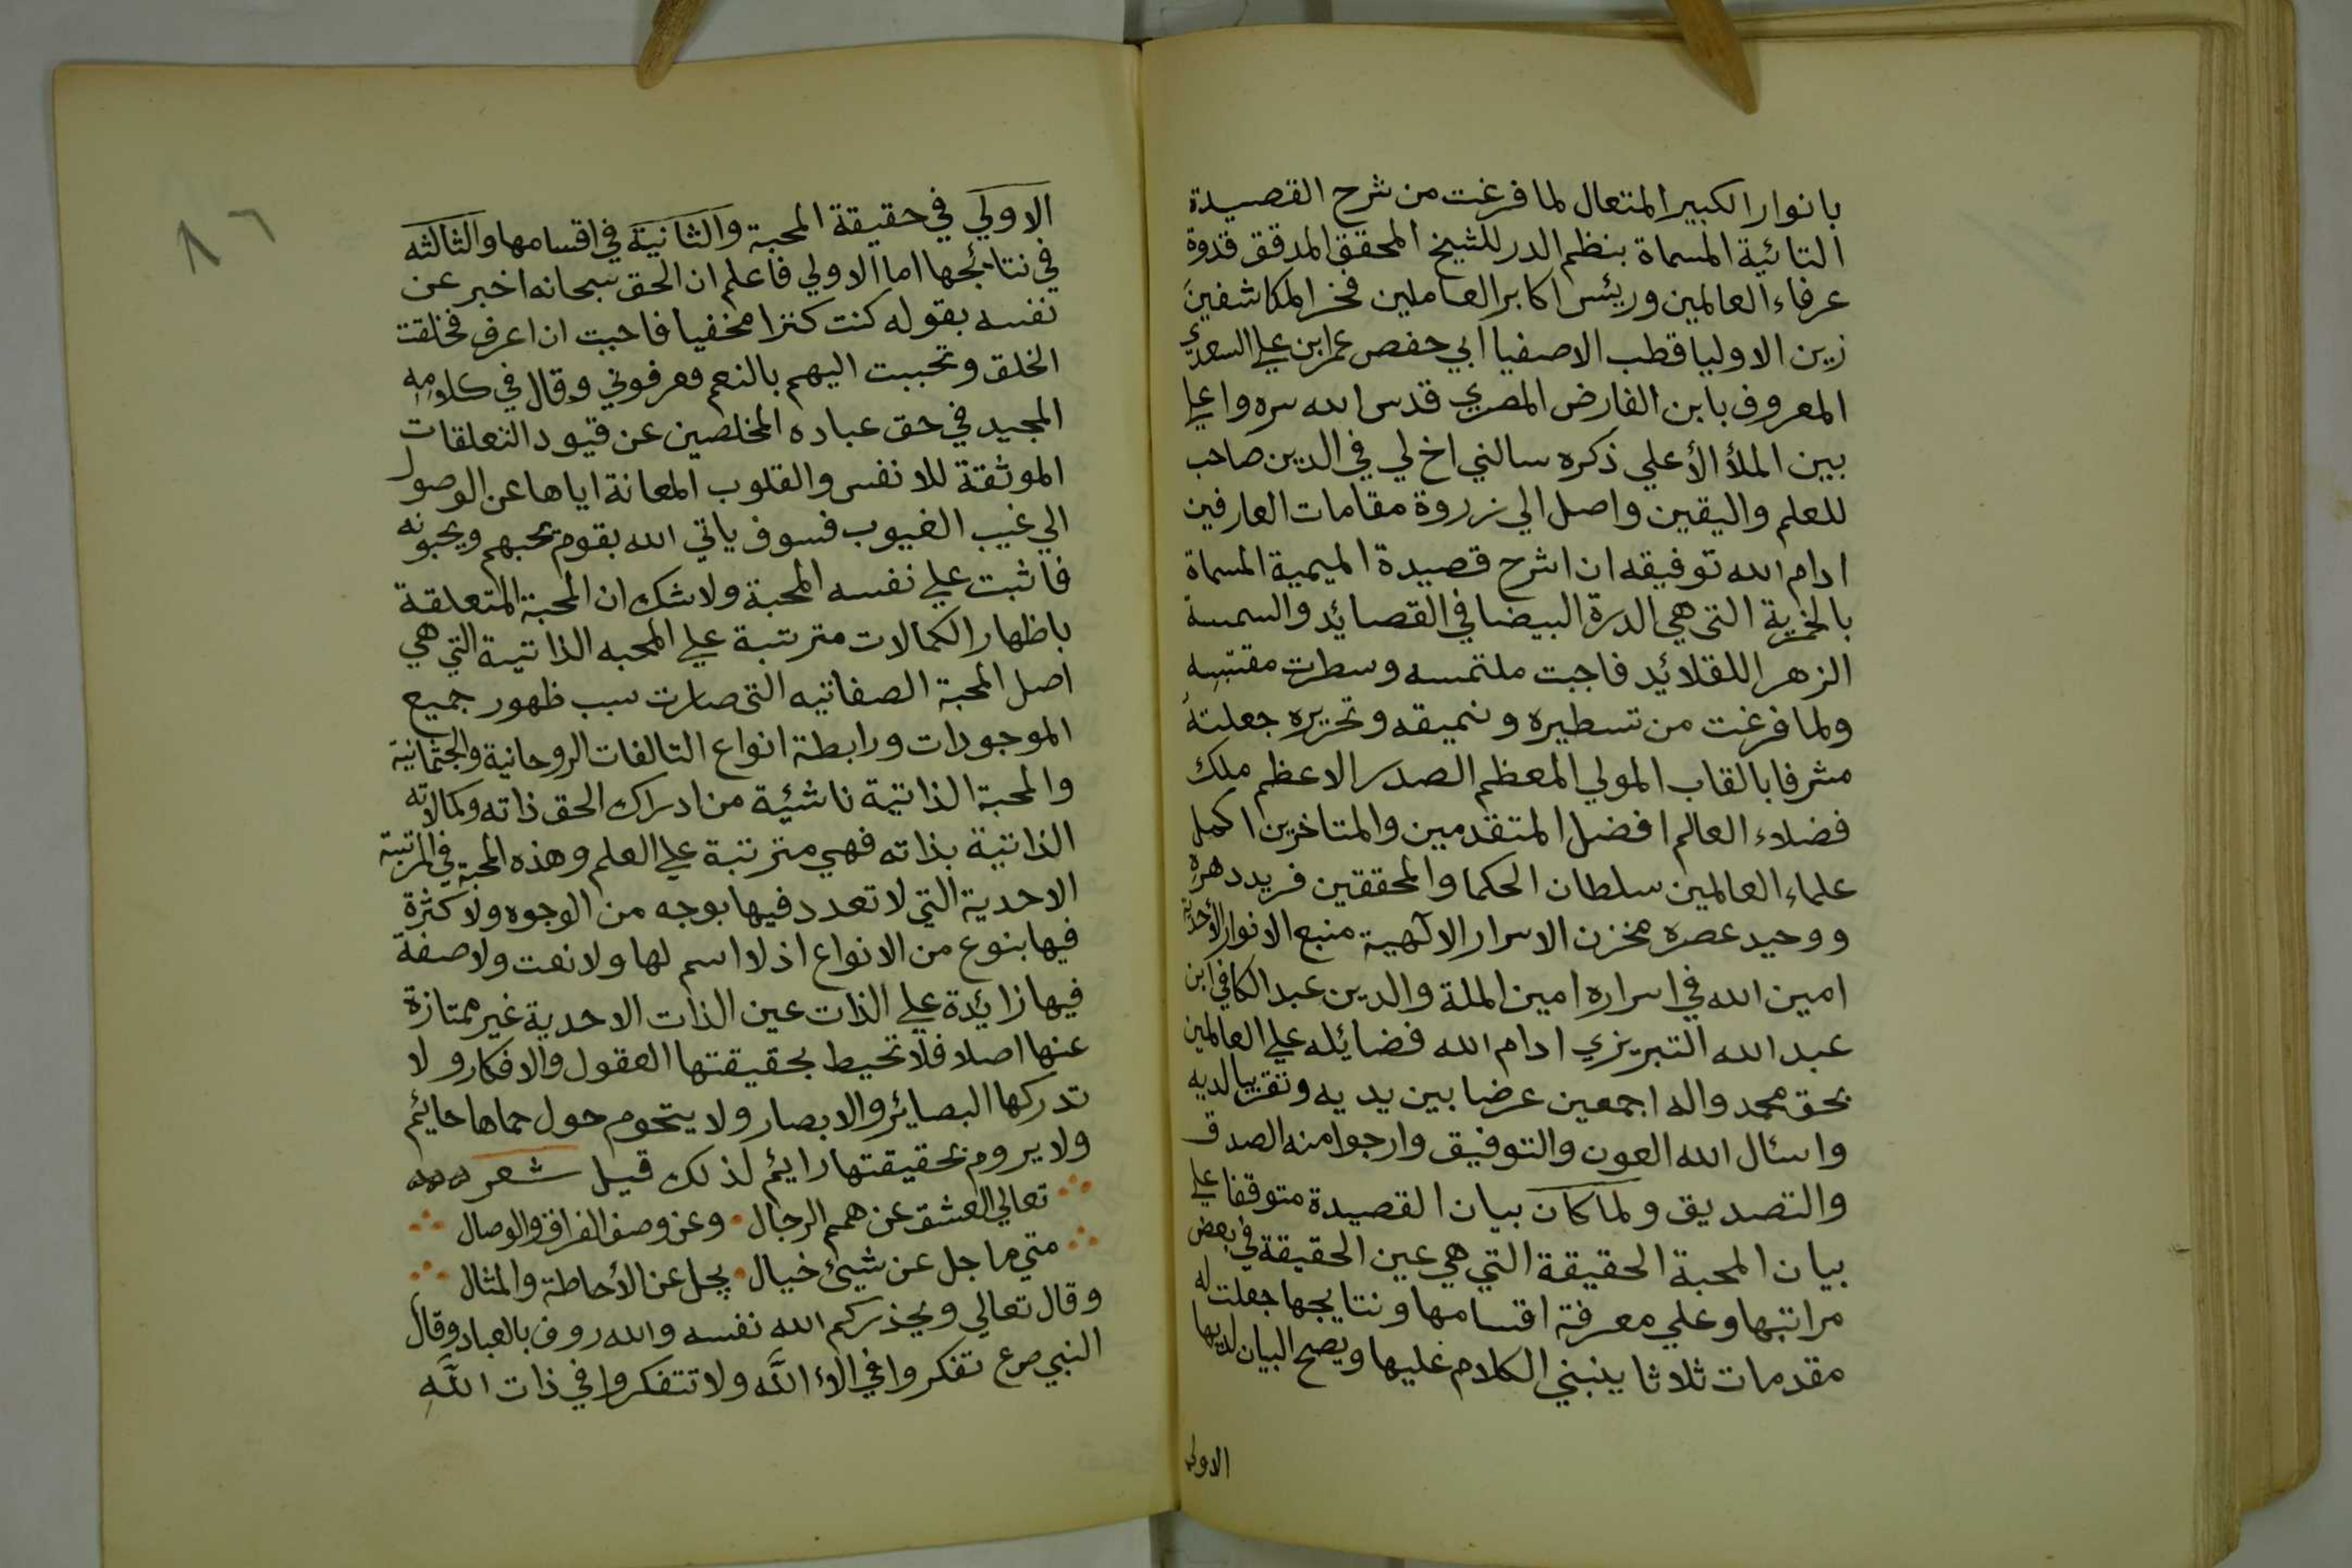 بانوار الكبير المتعال لما فرغت من شرح القصيدة
التائية المسماة بنظم الدر للشيخ المحقق المدقق قدوة
عرفاء العالمين ورئيس اكابر العاملين فخر المكاشفين
زين الاوليا قطب الاصفيا ابي حفص عمر ابن علي السعدي
المعروف بابن الفارض المصري قدس الله سره واعلي
بين الملأ الأعلي ذكره سالني اخ لي في الدين صاحب
للعلم واليقين واصل الي زروة مقامات العارفين
ادام الله توفيقه ان اشرح قصيدة الميمية المسماة
بالخمرية التي هي الدرة البيضا في القصائد والسمسة
الزهرا للقلائد فاجبت ملتمسه وسطرت مقتبسه
ولما فرغت من تسطيره ونميقه وتحريره جعلته
مشرفا بالقاب المولي المعظم الصدر الاعظم ملك
فضلاء العالم افضل المتقدمين والمتاخرين اكمل
علماء العالمين سلطان الحكما والمحققين فريد دهره
ووحيد عصره مخزن الاسرار الآلهية منبع الانوار الأحدية
امين الله في اسراره امين الملة والدين عبد الكافي ابن
عبد الله التبريزي ادام الله فضايله علي العالمين
بحق محمد واله اجمعين عرضا بين يديه وتقربا لديه
واسئال الله العون والتوفيق وارجوا منه الصدق
والتصديق ولما كان بيان القصيدة متوقفا علي
بيان المحبة الحقيقة التي هي عين الحقيقة في بعض
مراتبها وعلي معرفة اقسامها ونتايجها جعلت له
مقدمات ثلاثا ينبني الكلام عليها ويصح البيان لديها
الاولي
٨٦
الاولي في حقيقة المحبة والثانية في اقسامها والثالثه
في نتائجها اما الاولي فاعلم ان الحق سبحانه اخبر عن
نفسه بقوله كنت كنزا مخفيا فاحببت ان اعرف فخلقت
الخلق وتحببت اليهم بالنعم فعرفوني وقال في كلامه
المجيد في حق عباده المخلصين عن قيود التعلقات
الموثقة للانفس والقلوب المعانة اياها عن الوصول
الي غيب الغيوب فسوف ياتي الله بقوم يحبهم ويحبونه
فاثبت علي نفسه المحبة ولاشك ان المحبة المتعلقة
باظهار الكمالات مترتبة علي المحبه الذاتية التي هي
اصل المحبة الصفاتيه التي صارت سبب ظهور جميع
الموجودات ورابطة انواع التالفات الروحانية والجثمانية
والمحبة الذاتية ناشئية من ادراك الحق ذاته وكمالاته
الذاتية بذاته فهي مترتبة علي العلم وهذه المحبة في المرتبة
الاحدية التي لا تعدد فيها بوجه من الوجوه ولا كثرة
فيها بنوع من الانواع اذ لا اسم لها ولا نعت ولا صفة
فيها زايدة علي الذات عين الذات الاحدية غير ممتازة
عنها اصلا فلا تحيط بحقيقتها العقول والافكار ولا
تدركها البصائر والابصار ولا يتحوم حول حماها حايم
ولا يروم بحقيقتها رايم لذلك قيل شعر
تعالي العشق عن همم الرجال وعن وصف الفراق والوصال
متي ما جل عن شيئ خيال يجل عن الأحاطة والمثال
وقال تعالي ويحذركم الله نفسه والله روف بالعباد وقال
النبي صع تفكروا في الاء الله ولا تتفكروا في ذات الله